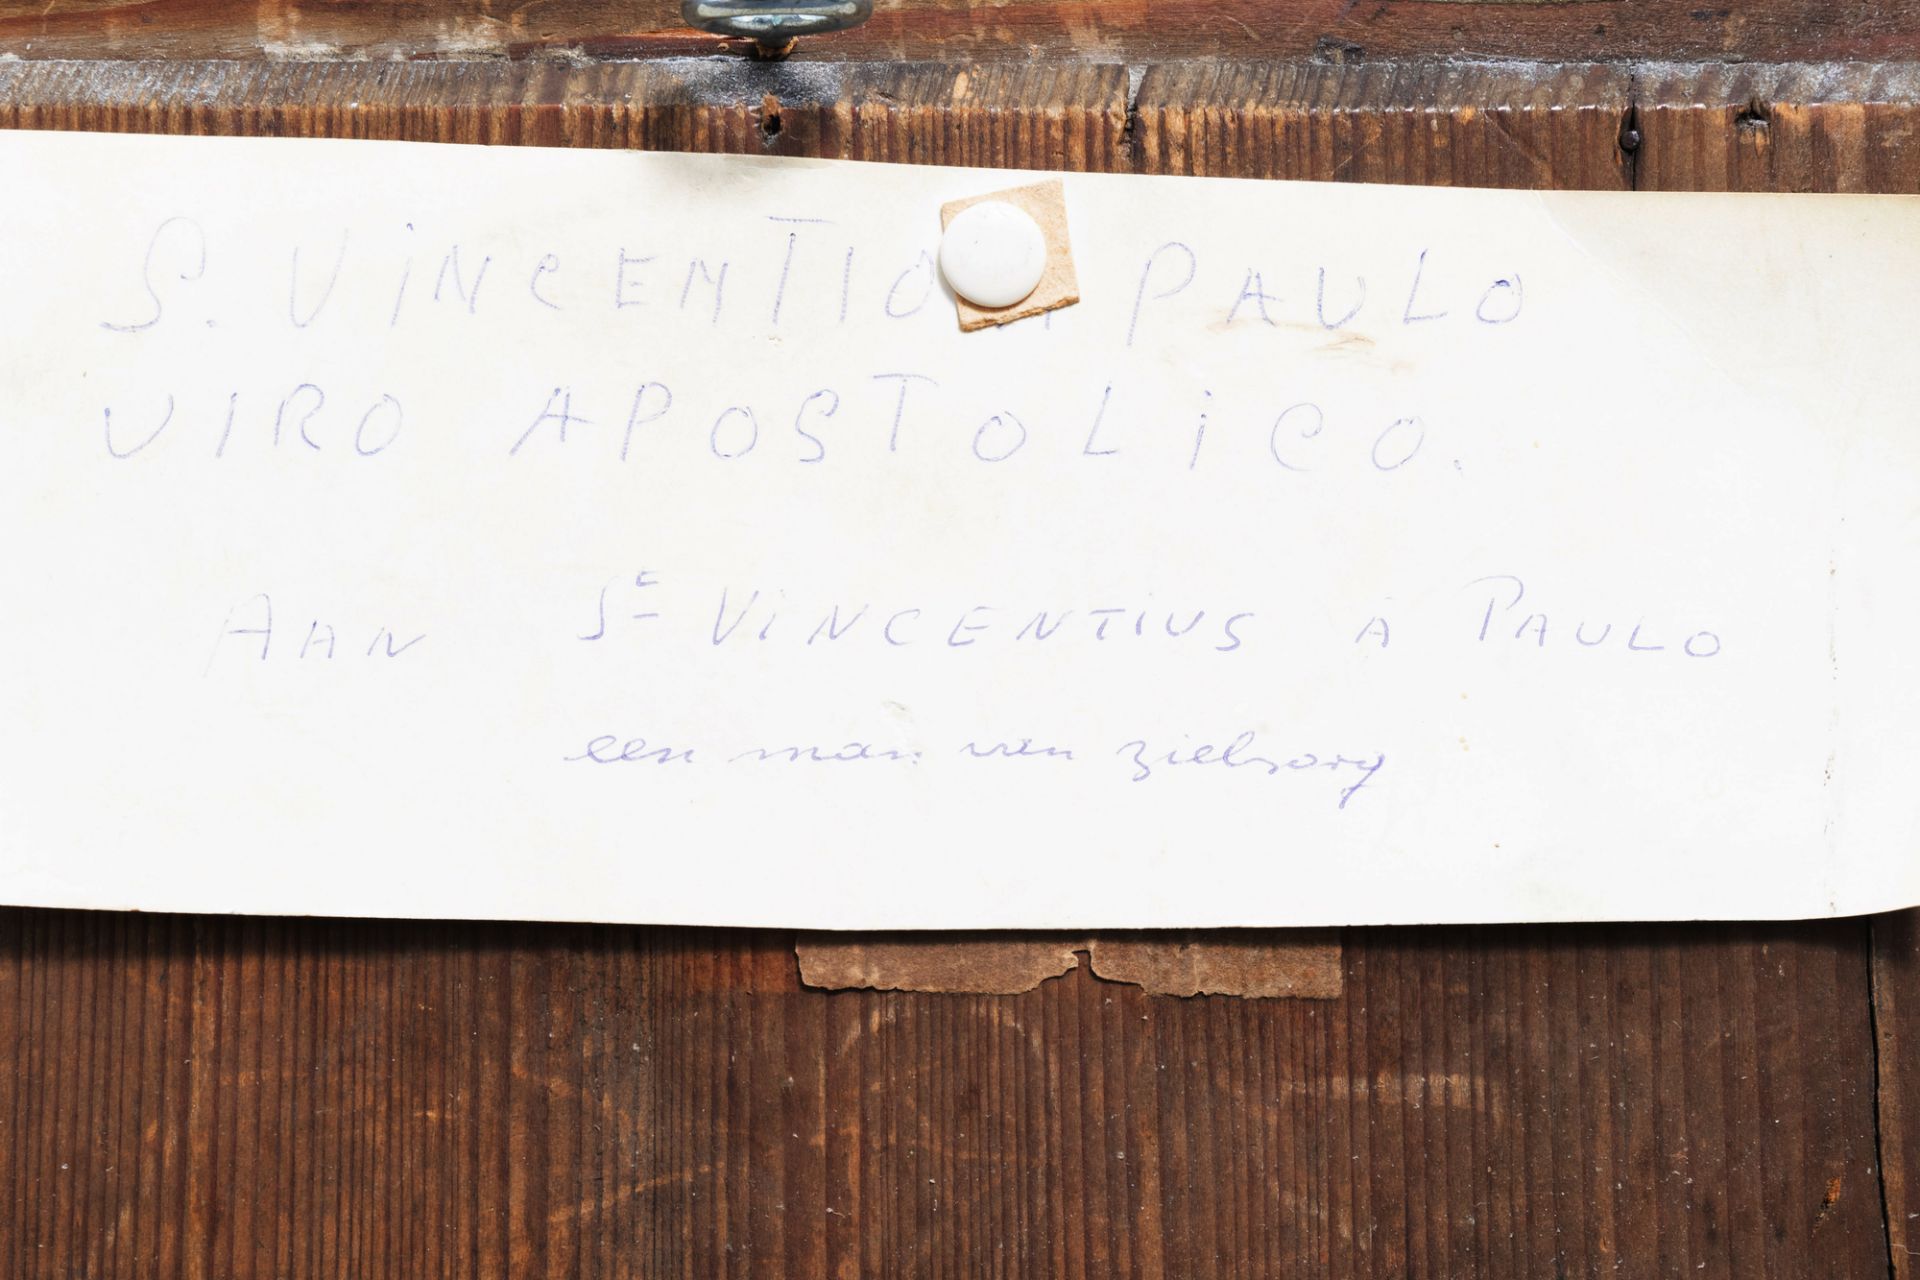 S. ViNCENTIO PAULO
VIRO APOSTOLiCO.
AAN St VINCENTIUS A PAULO
een man van zielzorg